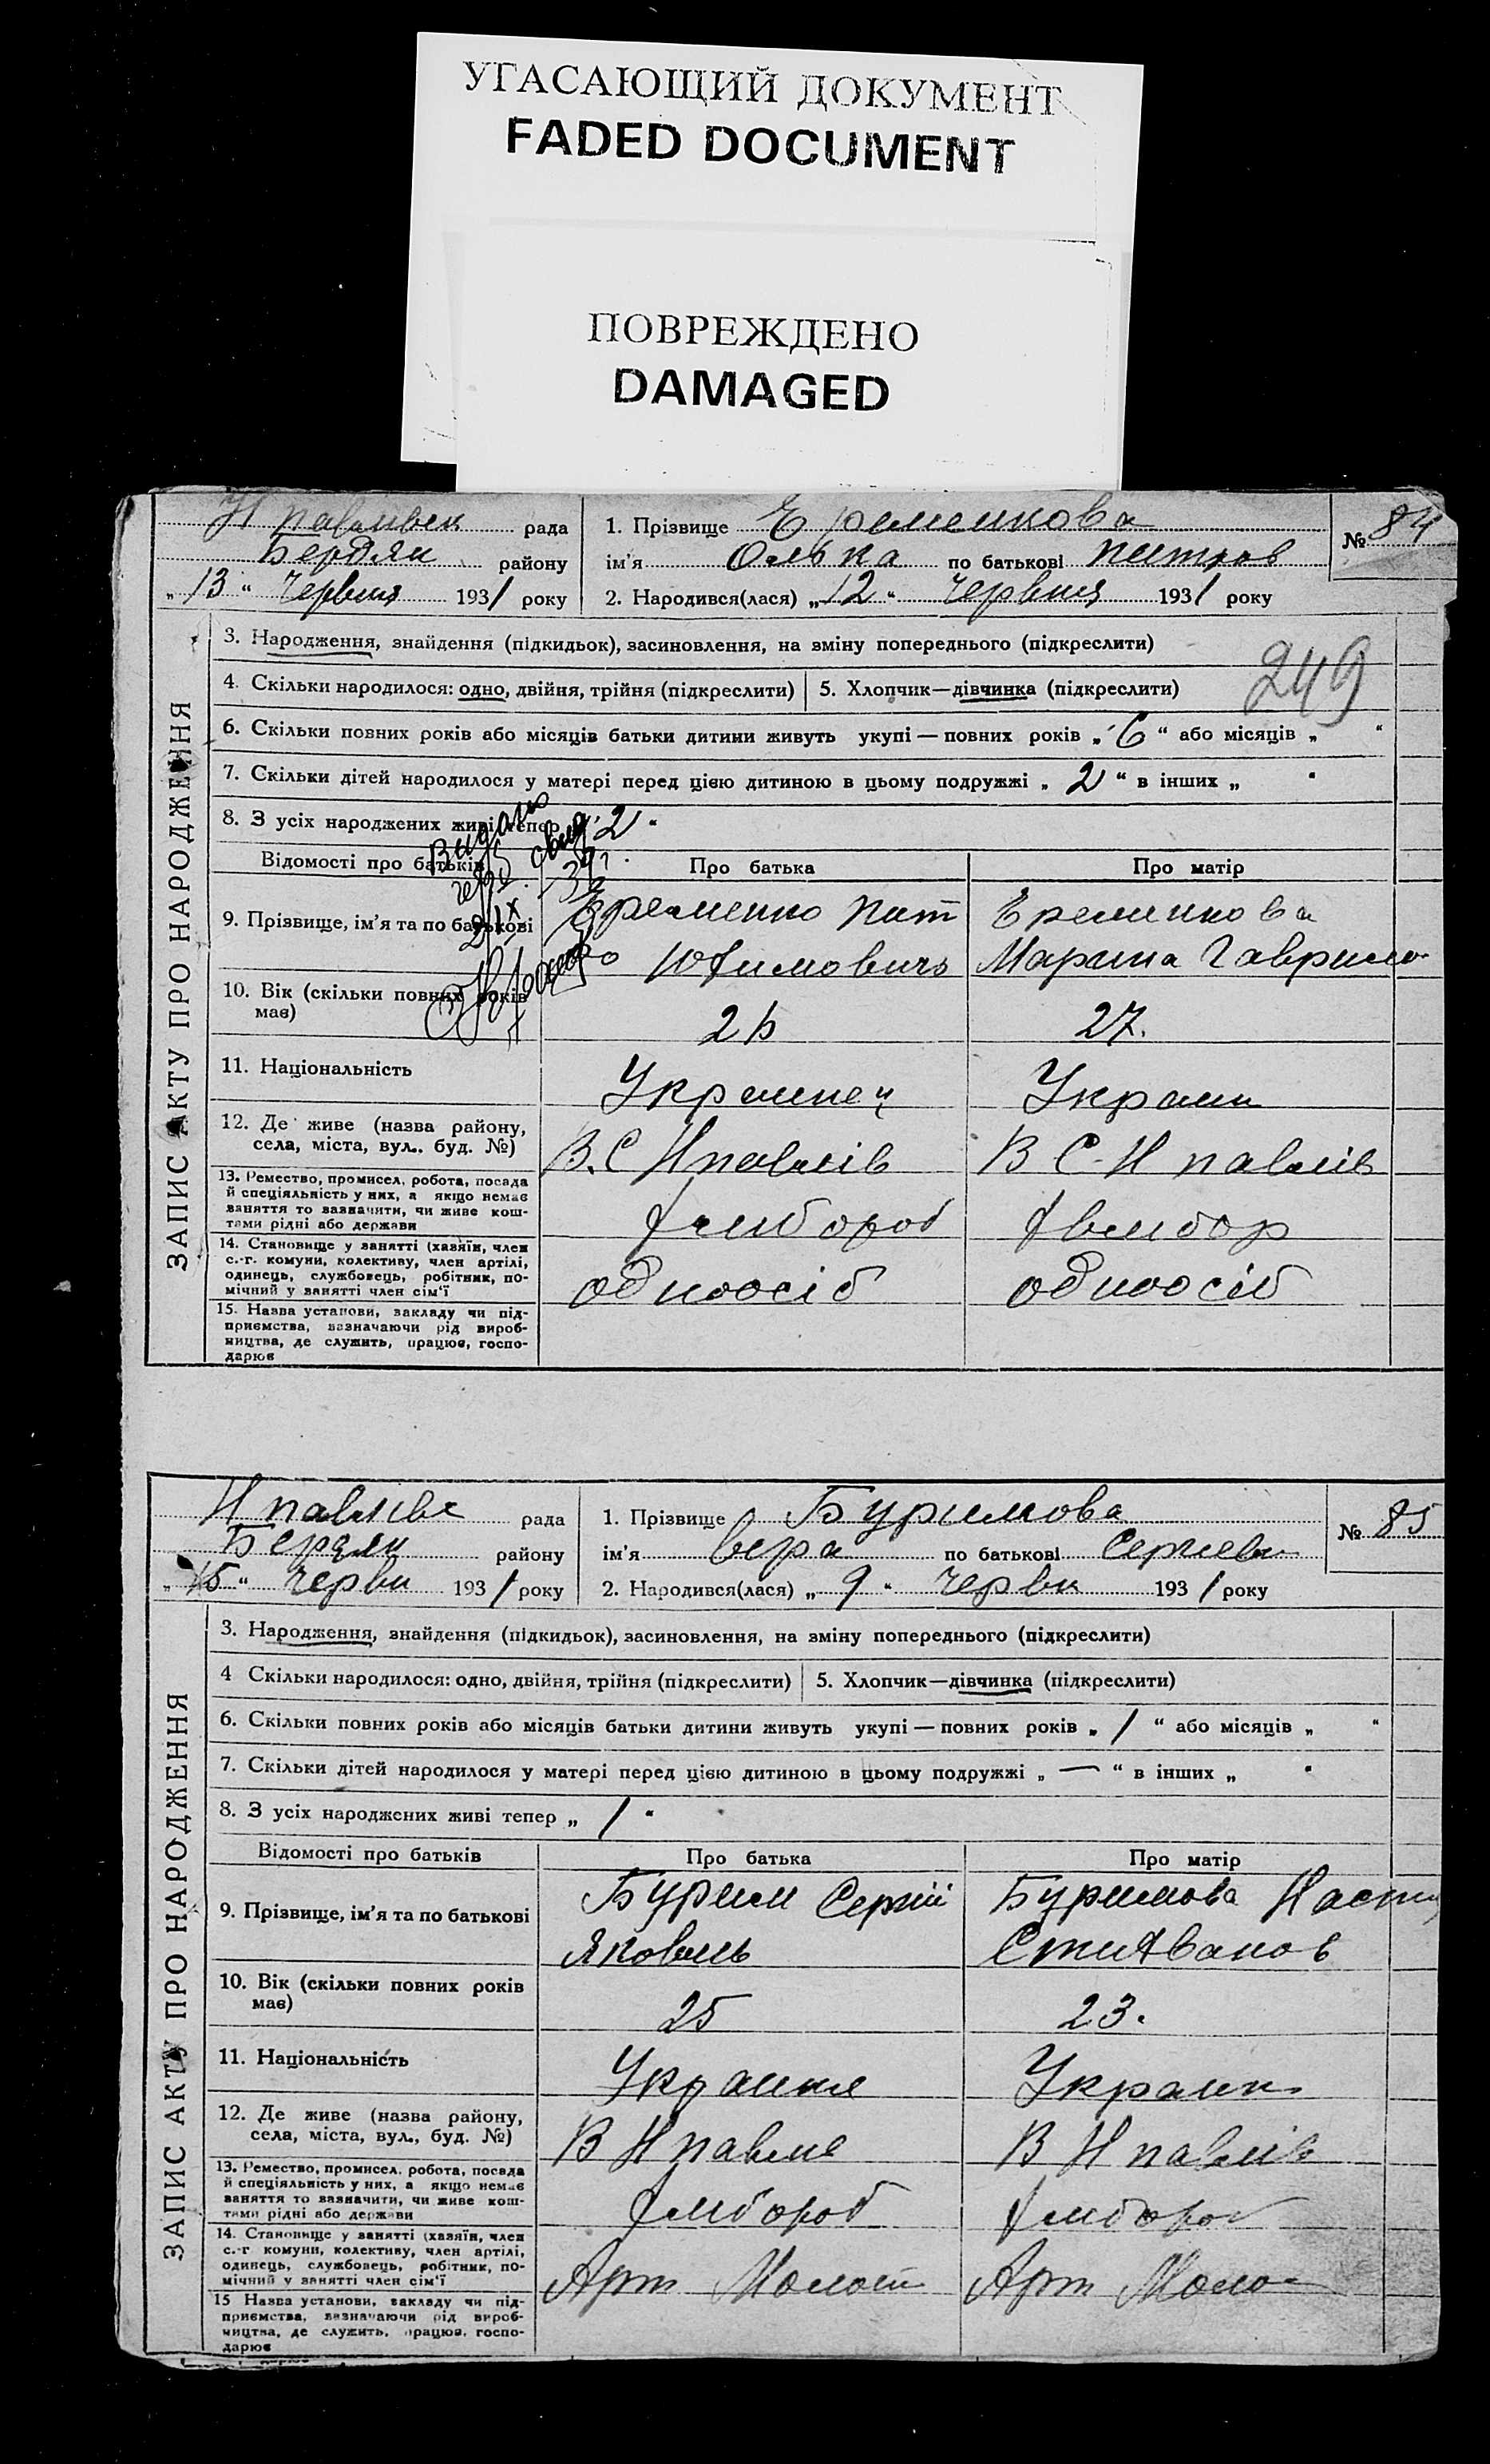 УГАСАЮЩИЙ ДОКУМЕНТ
FADED DOCUMENT
ПОВРЕЖДЕНО
DAMAGED
Н павлівск рада
Бердян району
„ 13 “ червня 1931 року
1. Прізвище Еременкова
ім'я Олька по батькові питров
2. Народився(лася) „ 12 “ червня 1931 року
№ 84
ЗАПИС АКТУ ПРО НАРОДЖЕННЯ
3. Народження, знайдення (підкидьок), засиновлення, на зміну попереднього (підкреслити)
249
4. Скільки народилося: одно, двійня, трійня (підкреслити) 5. Хлопчик—дівчинка (підкреслити)
6. Скільки повних років або місяців батьки дитини живуть укупі — повних років „ 6 “ або місяців „ “
7. Скільки дітей народилося у матері перед цією дитиною в цьому подружжі „ 2 “ в інших „ “
8. З усіх народжених живі тепер „ 2 “
Видано
Відомості про батьків Про батька Про матір
9. Прізвище, ім'я та по батькові Еременко пит Еременкова
Юхимовичь Марина Гаврило
10. Вік (скільки повних років має) 27.
11. Національність Украинец Украин
12. Де живе (назва району, села, міста, вул.. буд. №) В. С Н павлів В С-Н павлів
13. Ремество, промисел, робота, посада й спеціяльність у них, а якщо немає заняття то зазначити, чи живе коштами рідні або держави
14. Становище у занятті (хазяїн, член с.-г. комуни, колективу, член артілі, одинець, службовець, робітник, помічний у занятті член сім'ї одноосіб одноосіб
15. Назва установи, закладу чи підприємства, зазначаючи рід виробництва, де служить, працює, господарює
Н павлівс рада
Бердян району
„ 15 “ черви 1931 року
1. Прізвище Буримова
ім'я вера по батькові Сергиев
2. Народився(лася) „ 9 “ черви 1931 року
№ 85
ЗАПИС АКТУ ПРО НАРОДЖЕННЯ
3. Народження, знайдення (підкидьок), засиновлення, на зміну попереднього (підкреслити)
4 Скільки народилося: одно, двійня, трійня (підкреслити) 5. Хлопчик—дівчинка (підкреслити)
6. Скільки повних років або місяців батьки дитини живуть укупі — повних років „ 1 “ або місяців „ “
7. Скільки дітей народилося у матері перед цією дитиною в цьому подружжі „ — “ в інших „ “
8. З усіх народжених живі тепер „ 1 “
Відомості про батьків Про батька Про матір
9. Прізвище, ім'я та по батькові Бурим Сергій Буримова Наст
Яковль
10. Вік (скільки повних років має) 25 23.
11. Національність Украин
12. Де живе (назва району, села, міста, вул., буд. №) В Н павле В Н павлів
13. Ремество, промисел, робота, посада й спеціяльність у них, а якщо немає заняття то зазначити, чи живе коштами рідні або держави
14. Становище у занятті (хазяїн, член с.-г комуни, колективу, член артілі, одинець, службовець, робітник, помічний у занятті член сім'ї Арт Молот Арт Моло
15 Назва установи, закладу чи підприємства, зазначаючи рід виробництва, де служить, працює, господарює